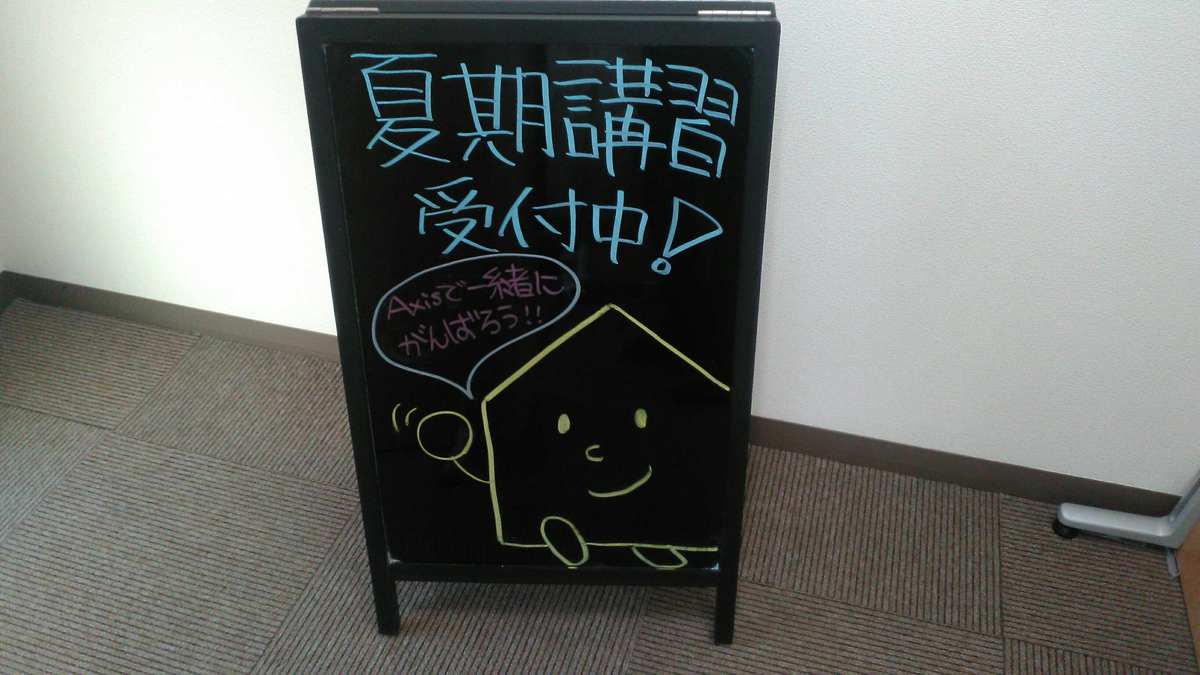 夏期講習
受付中!
Axisで一緒に
がんばろう!!